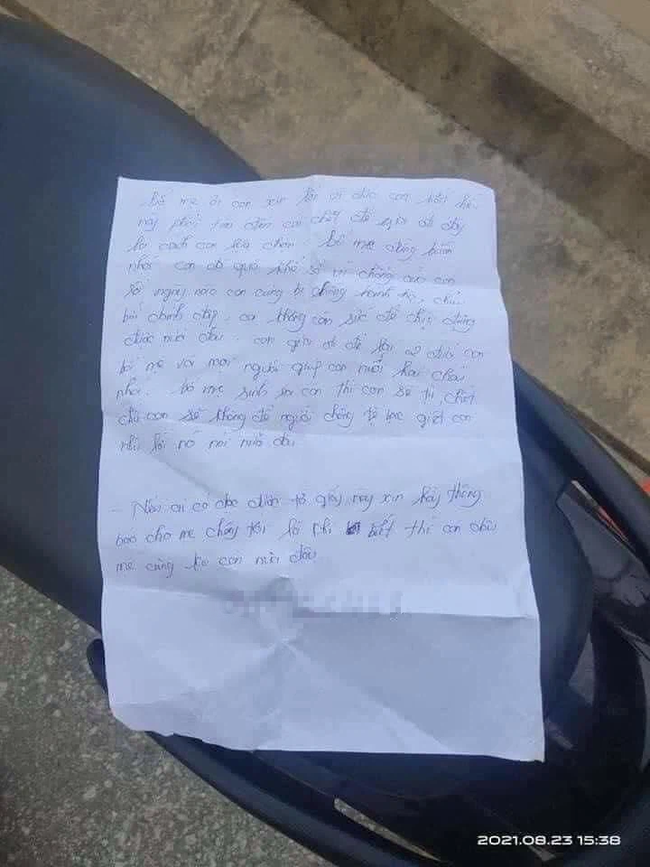 Bố mẹ ơi con xin lỗi vì đến con
này phải tìm đến cái chết để
là cách con lựa chọn. Bố mẹ đừng buồn
nhé. con đã quá khổ sở vì chồng của con
rồi ngày nào con cũng bị chồng hành hạ, chửi
bới đánh đập. ca không còn sức để chịu đựng
được nữa đâu. con để lại 2 đứa con
bố mẹ và mọi người giúp con nuôi hai cháu
nhé. bố mẹ sinh ra con thì con sẽ tự chết
chứ con sẽ không để người chồng tệ bạc giết con
như lời nó nói nữa đâu.
- Nếu ai có đọc được tờ giấy này xin hãy thông
báo cho mẹ chồng tôi là khi biết thì con dâu
mẹ cũng ko còn nữa đâu
2021.08.23 15:38